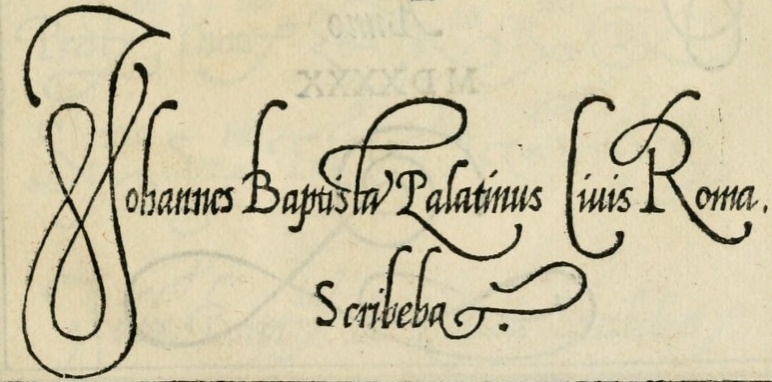 Johannes Baptista Palatinus Civis Roma.
Scribeba.